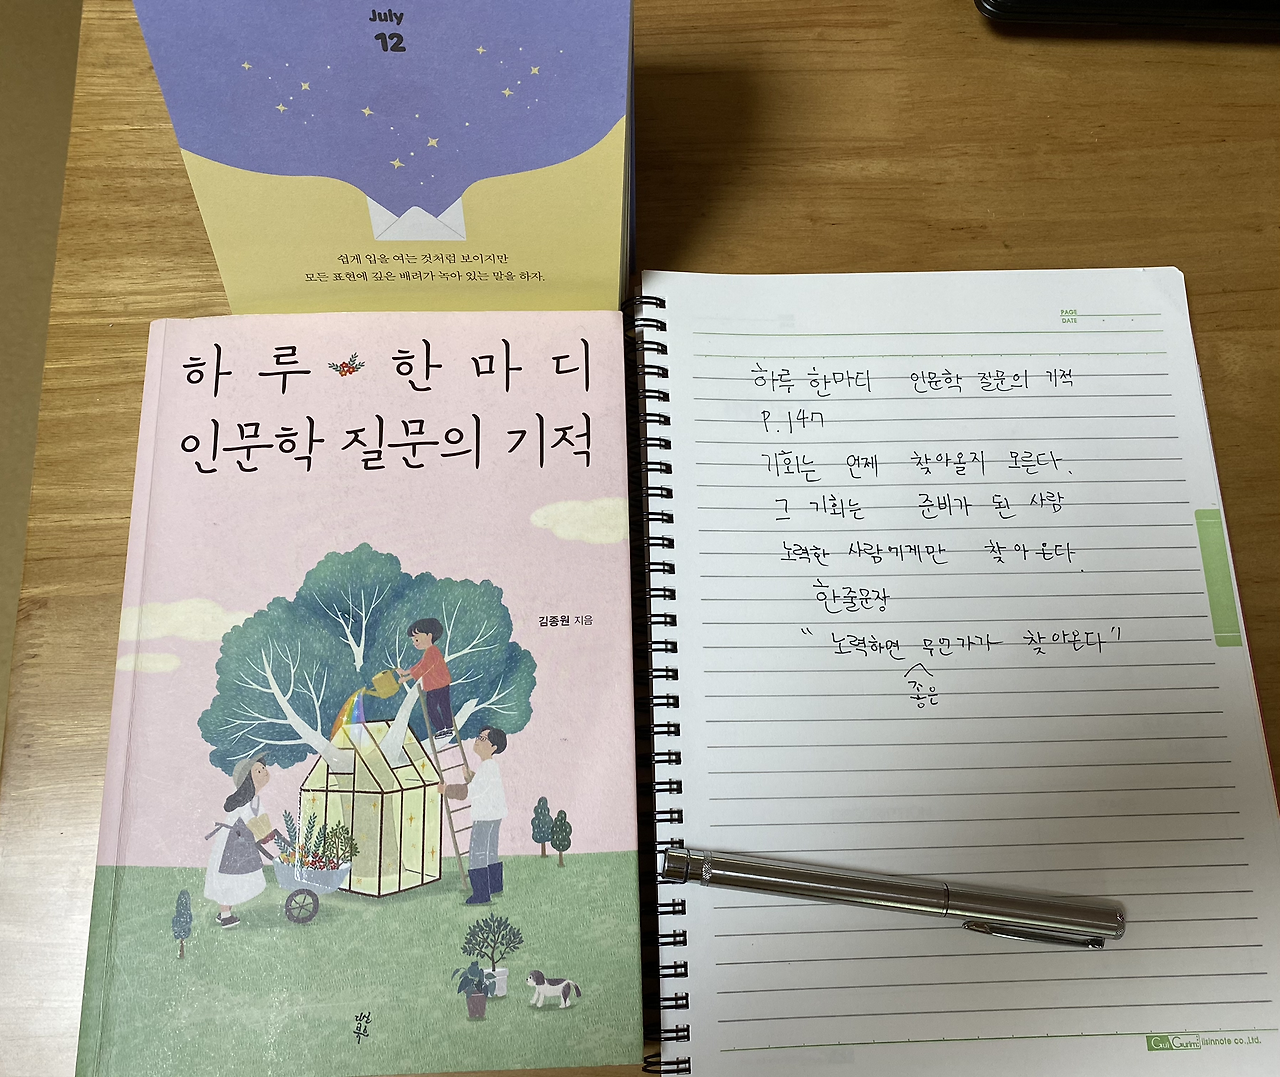 July
12
쉽게 입을 여는 것처럼 보이지만
모든 표현에 깊은 배려가 녹아 있는 말을 하자.
하루 한마디
인문학 질문의 기적
김종원 지음
다산
북스
PAGE
DATE
하루 한마디 인문학 질문의 기적
P. 147
기회는 언제 찾아올지 모른다.
그 기회는 준비가 된 사람
노력한 사람에게만 찾아 온다.
한줄문장
"노력하면 무언가가 찾아온다"
좋은
Gul Gurim
ilsinnote co.,Ltd.